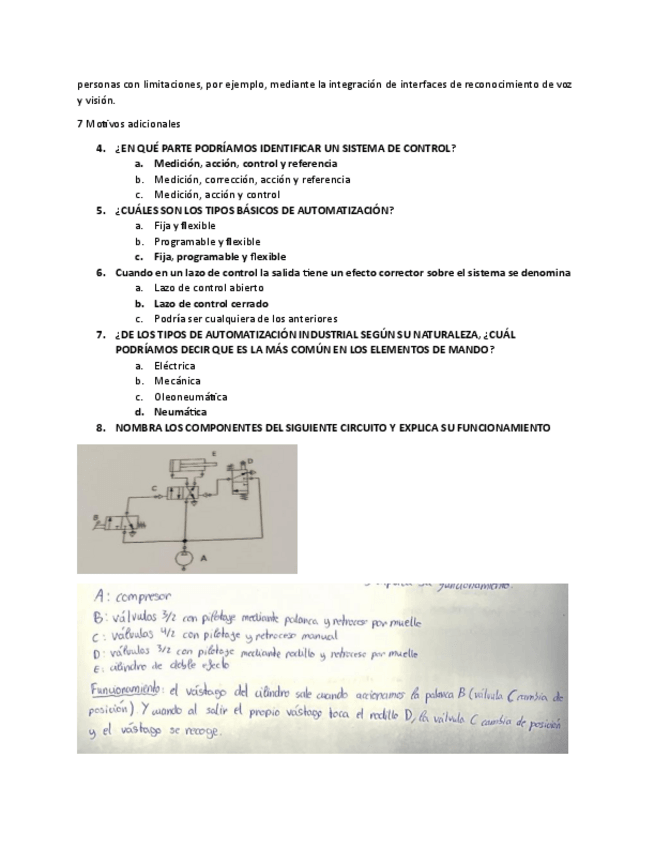 personas con limitaciones, por ejemplo, mediante la integración de interfaces de reconocimiento de voz
y visión.
7 Motivos adicionales
4. ¿EN QUÉ PARTE PODRÍAMOS IDENTIFICAR UN SISTEMA DE CONTROL?
a. Medición, acción, control y referencia
b. Medición, corrección, acción y referencia
c. Medición, acción y control
5. ¿CUÁLES SON LOS TIPOS BÁSICOS DE AUTOMATIZACIÓN?
a. Fija y flexible
b. Programable y flexible
c. Fija, programable y flexible
6. Cuando en un lazo de control la salida tiene un efecto corrector sobre el sistema se denomina
a. Lazo de control abierto
b. Lazo de control cerrado
c. Podría ser cualquiera de los anteriores
7. ¿DE LOS TIPOS DE AUTOMATIZACIÓN INDUSTRIAL SEGÚN SU NATURALEZA, ¿CUÁL
PODRÍAMOS DECIR QUE ES LA MÁS COMÚN EN LOS ELEMENTOS DE MANDO?
a. Eléctrica
b. Mecánica
c. Oleoneumática
d. Neumática
8. NOMBRA LOS COMPONENTES DEL SIGUIENTE CIRCUITO Y EXPLICA SU FUNCIONAMIENTO
E
D
C
B
A
su funcionamiento.
A: compresor
B: válvulas 3/2 con pilotaje mediante palanca y retroceso por muelle
C: válvulas 4/2 con pilotaje y retroceso manual
D: válvulas 3/2 con pilotaje mediante rodillo y retroceso por muelle
E: cilindro de doble efecto
Funcionamiento: el vástago del cilindro sale cuando accionamos la palanca B (válvula C cambia de
posición). Y cuando al salir el propio vástago toca el rodillo D, la válvula C cambia de posición
y el vástago se recoge.